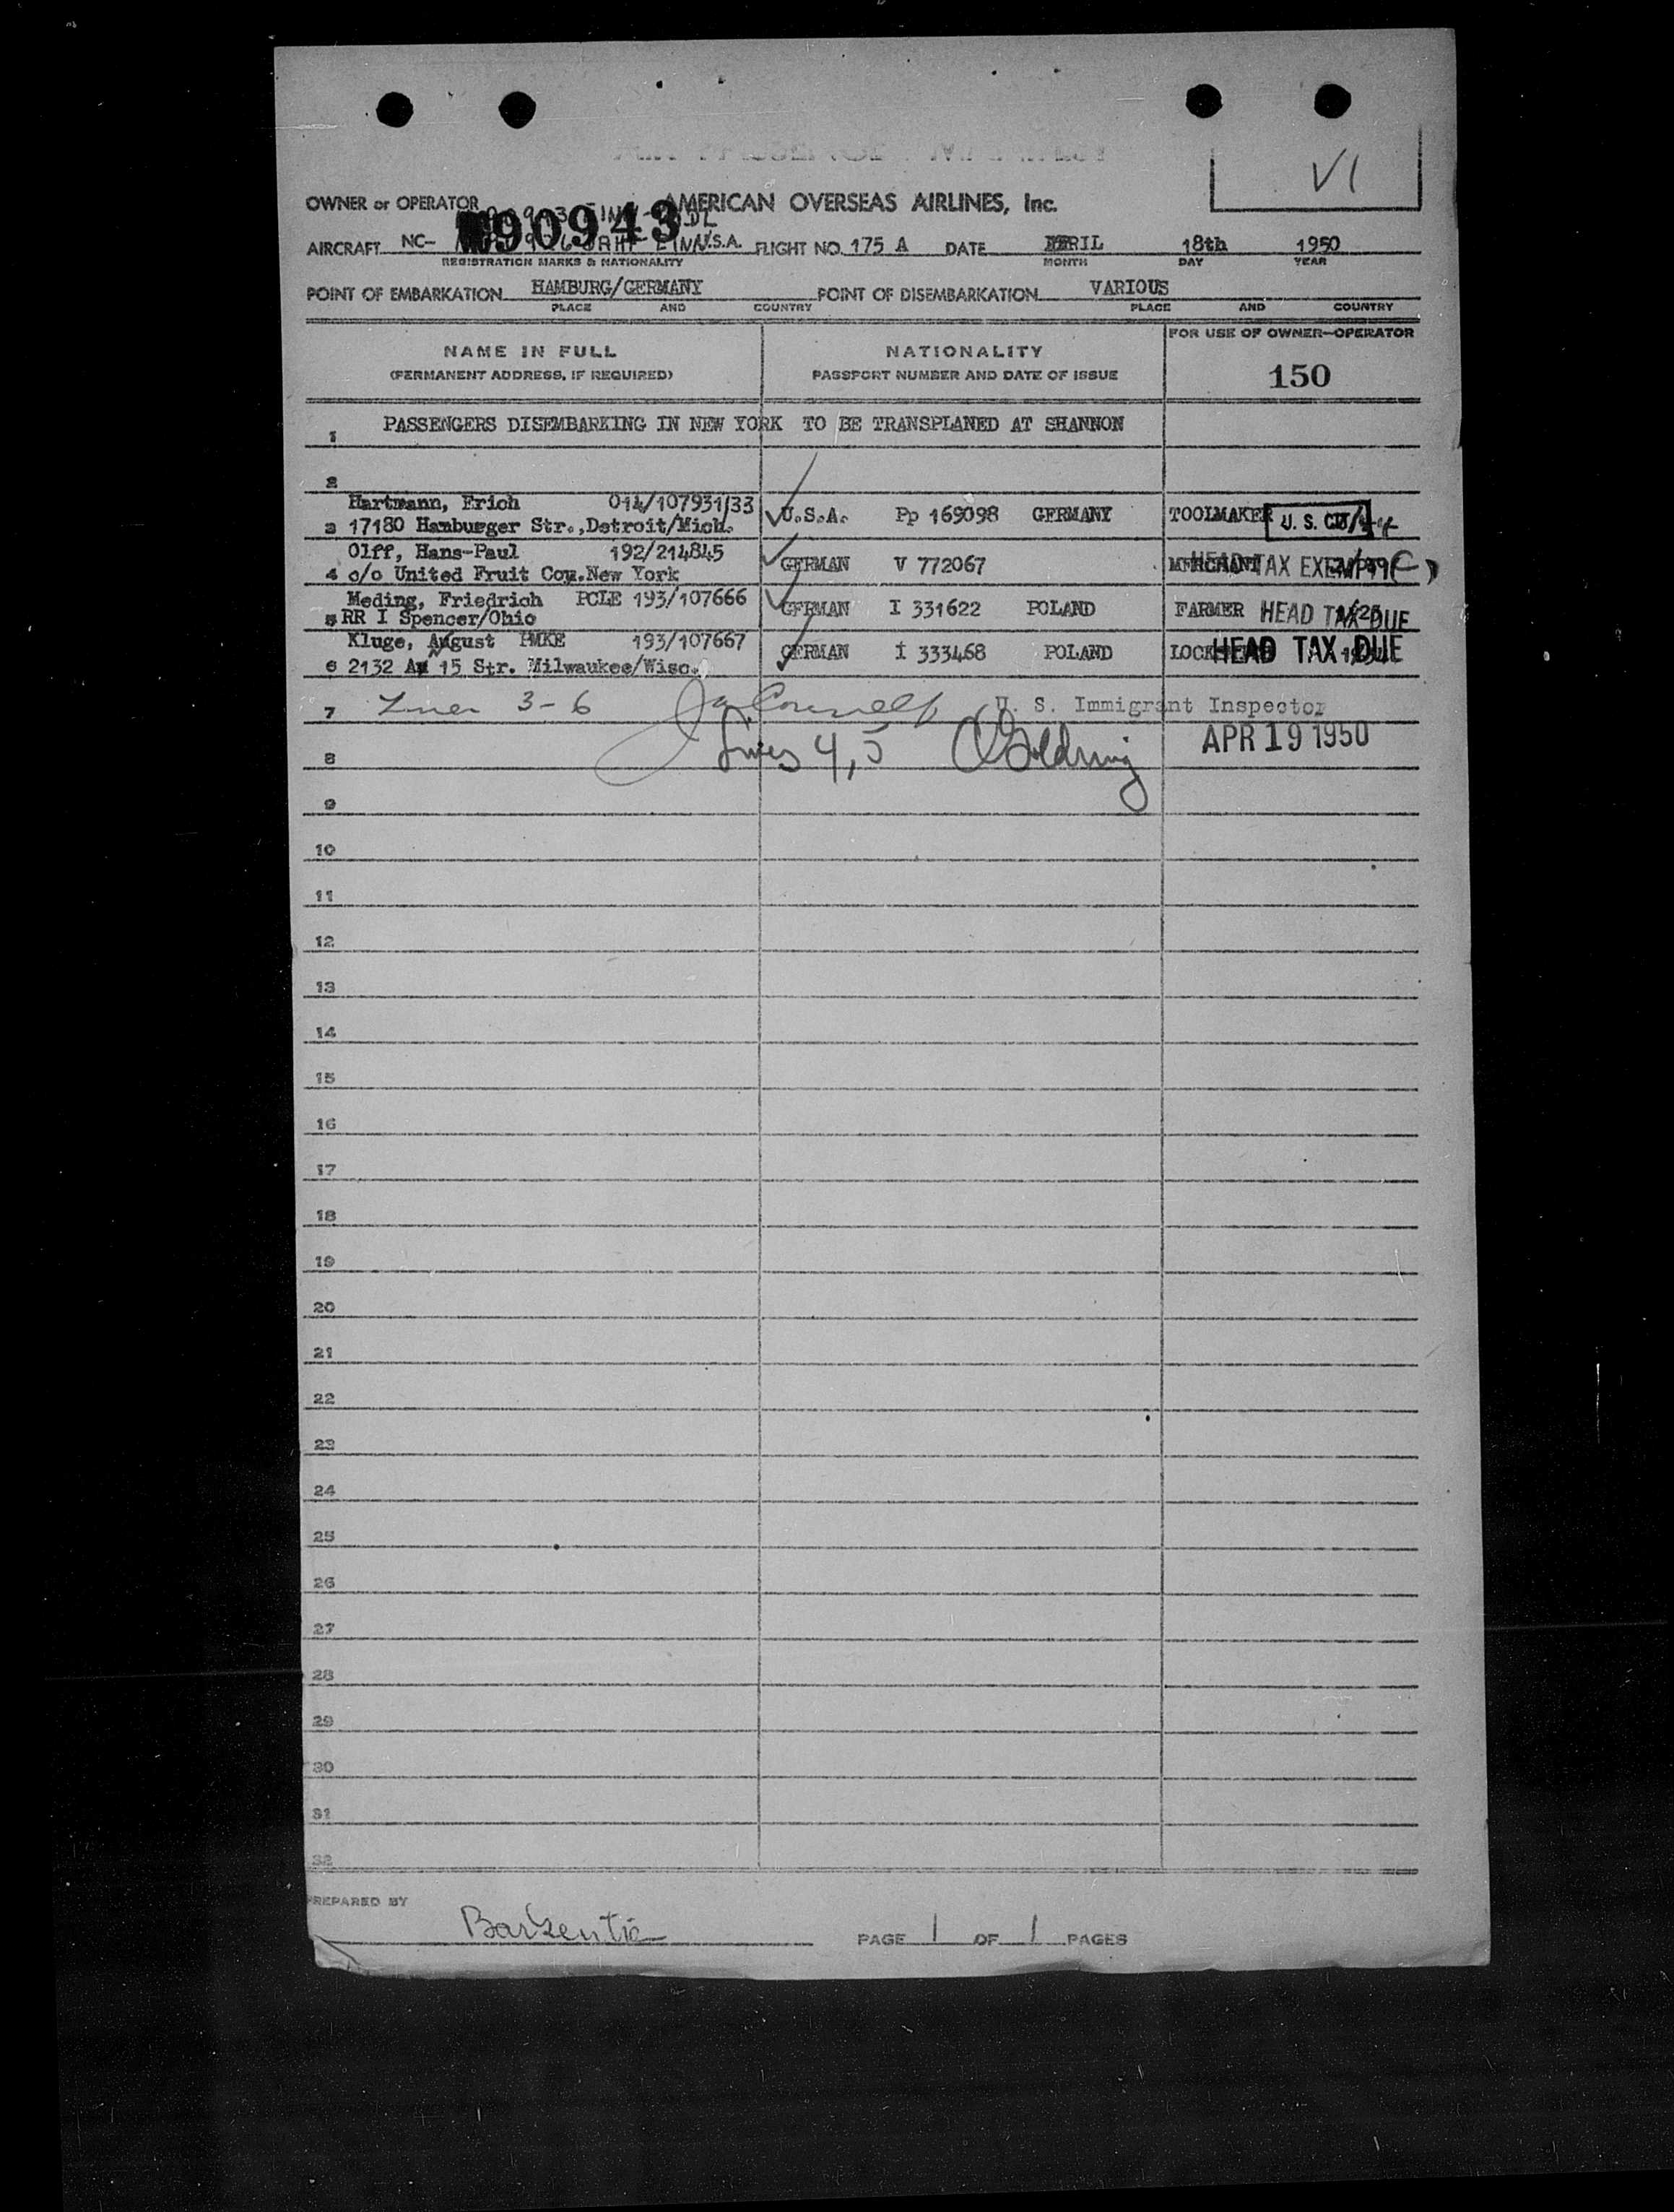 VI
OWNER or OPERATOR AMERICAN OVERSEAS AIRLINES, Inc.
90943
AIRCRAFT NC- U.S.A. FLIGHT NO. 175 A DATE APRIL 18th 1950
REGISTRATION MARKS & NATIONALITY MONTH DAY YEAR
POINT OF EMBARKATION HAMBURG/GERMANY POINT OF DISEMBARKATION VARIOUS
PLACE AND COUNTRY PLACE AND COUNTRY
NAME IN FULL NATIONALITY FOR USE OF OWNER-OPERATOR
(PERMANENT ADDRESS, IF REQUIRED) PASSPORT NUMBER AND DATE OF ISSUE 150
1 PASSENGERS DISEMBARKING IN NEW YORK TO BE TRANSPLANED AT SHANNON
2
Hartmann, Erich 014/107931/33 U.S.A. Pp 169098 GERMANY TOOLMAKER U. S. CIT
3 17180 Hamburger Str.,Detroit/Mich.
Olff, Hans-Paul 192/214845 GERMAN V 772067 MERCHANT HEAD TAX EXEMPT
4 c/o United Fruit Com.New York
Meding, Friedrich POLE 193/107666 GERMAN I 331622 POLAND FARMER HEAD TAX DUE
5 RR I Spencer/Ohio
Kluge, August HMKE 193/107667 GERMAN I 333468 POLAND HEAD TAX DUE
6 2132 15 Str. Milwaukee/Wisc.
7 3-6 U. S. Immigrant Inspector
8 Lines 4,5 Goldring APR 19 1950
9
10
11
12
13
14
15
16
17
18
19
20
21
22
23
24
25
26
27
28
29
30
31
32
PREPARED BY
PAGE 1 OF 1 PAGES